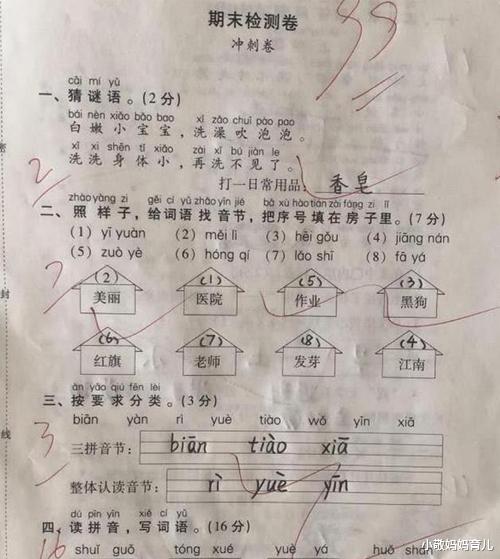 期末检测卷
99
冲刺卷
cāi mí yǔ
一、猜谜语。(2分)
bái nèn xiǎo bǎo bao xǐ zǎo chuī pào pao
白嫩小宝宝，洗澡吹泡泡。
xǐ xi shēn tǐ xiǎo zài xǐ bú jiàn le
洗洗身体小，再洗不见了。
2
打一日常用品：香皂
zhào yàng zi gěi cí yǔ zhǎo yīn jié bǎ xù hào tián zài fáng zi lǐ
二、照样子，给词语找音节，把序号填在房子里。(7分)
(1) yī yuàn (2) měi lì (3) hēi gǒu (4) jiāng nán
(5) zuò yè (6) hóng qí (7) lǎo shī (8) fā yá
7
(2) (1) (5) (3)
美丽 医院 作业 黑狗
(6) (7) (8) (4)
红旗 老师 发芽 江南
àn yāo qiú fēn lèi
三、按要求分类。(3分)
biān yàn rì yuè tiào wǒ yīn xiā
3
三拼音节：biān tiào xiā
整体认读音节：rì yuè yīn
dú pīn yīn xiě cí yǔ
四、读拼音，写词语。(16分)
16
shuǐ guǒ tóng xué yuè yá
密
封
线
小敬妈妈育儿